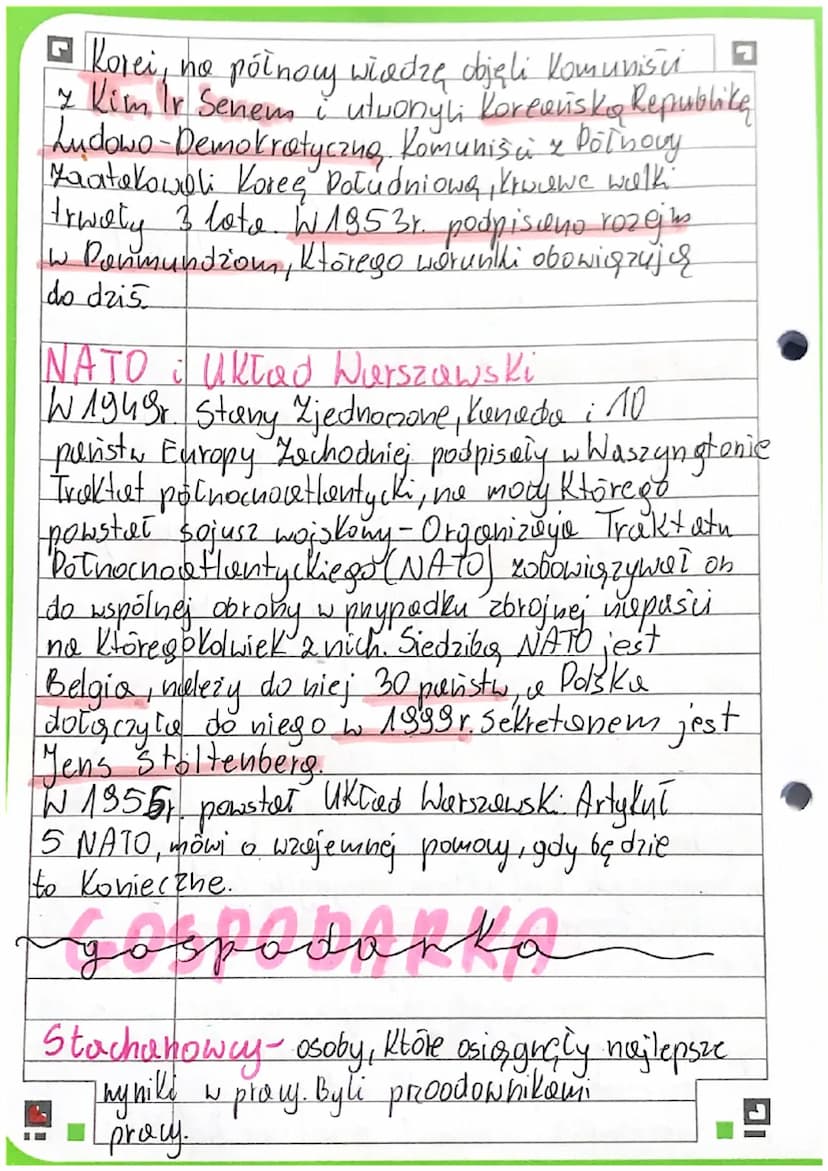 Korei, na północy władzę objęli komuniści
z Kim Ir Senem i utworzyli Koreańską Republikę
Ludowo-Demokratyczną. Komuniści z Północy
zaatakowali Koreę Południową, krwawe walki
trwały 3 lata. W 1953r. podpisano rozejm
w Panmundżom, którego warunki obowiązują
do dziś.
NATO i Układ Warszawski
W 1949r. Stany Zjednoczone, Kanada i 10
państw Europy Zachodniej podpisały w Waszyngtonie
Traktat północnoatlantycki, na mocy którego
powstał sojusz wojskowy - Organizacja Traktatu
Północnoatlantyckiego (NATO) zobowiązywał on
do wspólnej obrony w przypadku zbrojnej napaści
na któregokolwiek z nich. Siedzibą NATO jest
Belgia, należy do niej 30 państw, a Polska
dołączyła do niego w 1999r. Sekretarzem jest
Jens Stoltenberg.
W 1955r. powstał Układ Warszawski. Artykuł
5 NATO, mówi o wzajemnej pomocy, gdy będzie
to konieczne.
GOSPODARKA
gospodarka
Stachanowcy - osoby, które osiągnęły najlepsze
wyniki w pracy. Byli przodownikami
pracy.